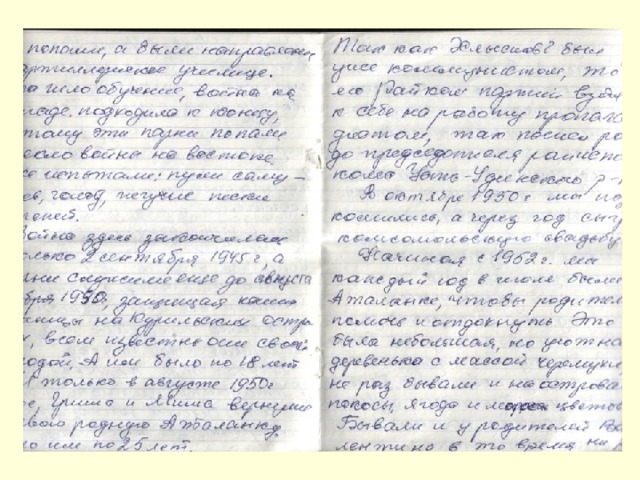 попали, а были направлены
артиллерийское училище.
шло обучение, война на
западе, подходила к концу,
этому эти парни попали
войну на востоке.
испытали: пули саму-
голод, жгучие пески
Война здесь закончилась
только 2 сентября 1945 г, а
служили ещё до августа
1950, защищая наши
границы на Курильских остро-
всем известны они своей
А им было по 18 лет
И только в августе 1950г
Гриша и Миша вернулись
свою родную Аталанку.
им по 25 лет.
Так как был
уже коммунистом, то
его Райком партии взял
к себе на работу пропаган
дистом, так посл
до председателя райиспол
кома Усть-Удинского р-
В октябре 1950 г мы по
комились, а через год сыг
комсомольскую свадьбу
Начиная с 1952 г. мы
каждый год в июле были
Аталанке, чтобы родител
помочь и отдохнуть. Это
была небольшая, но уютная
деревенька с массой черемухи
не раз бывали и на острова
покосы, ягода и цветов
Бывали и у родителей Ва
лентина в то время на